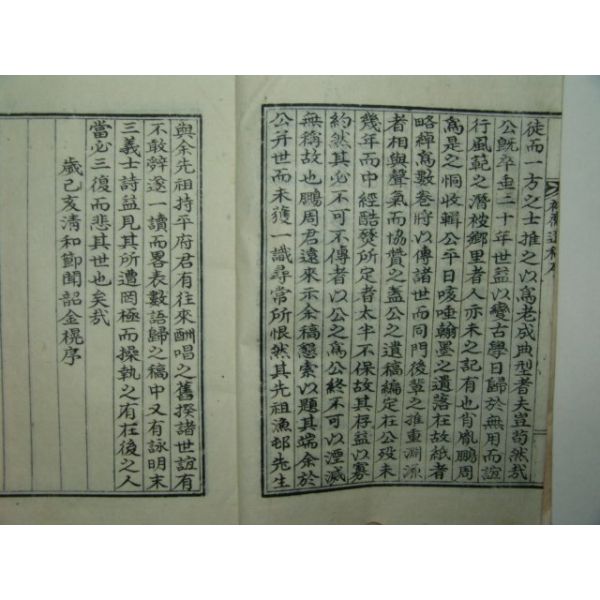 徒而一方之士推之以爲老成典型者夫豈苟然哉
公旣卒垂二十年世益以變古學日歸於無用而誼
行風範之潛被鄉里者人亦未之記有也肖胤鵬周
爲是之恫收輯公平日咳唾翰墨之遺落在故紙者
略綽爲數卷將以傳諸世而同門後輩之推重淵源
者相與聲氣而協贊之盖公之遺稿編定在公歿未
幾年而中經酷燹所定者太半不保故其存益以寡
約然其必不可不傳者以公之爲公終不可以湮滅
無稱故也鵬周君遠來示余稿懇索以題其端余於
公并世而未獲一識尋常所恨然其先祖漁邨先生
與余先祖持平府君有往來酬唱之舊揆諸世誼有
不敢辭遂一讀而畧表數語歸之稿中又有詠明末
三義士詩益見其所遭罔極而操執之有在後之人
當必三復而悲其世也矣哉
歲己亥淸和節聞韶金榥序